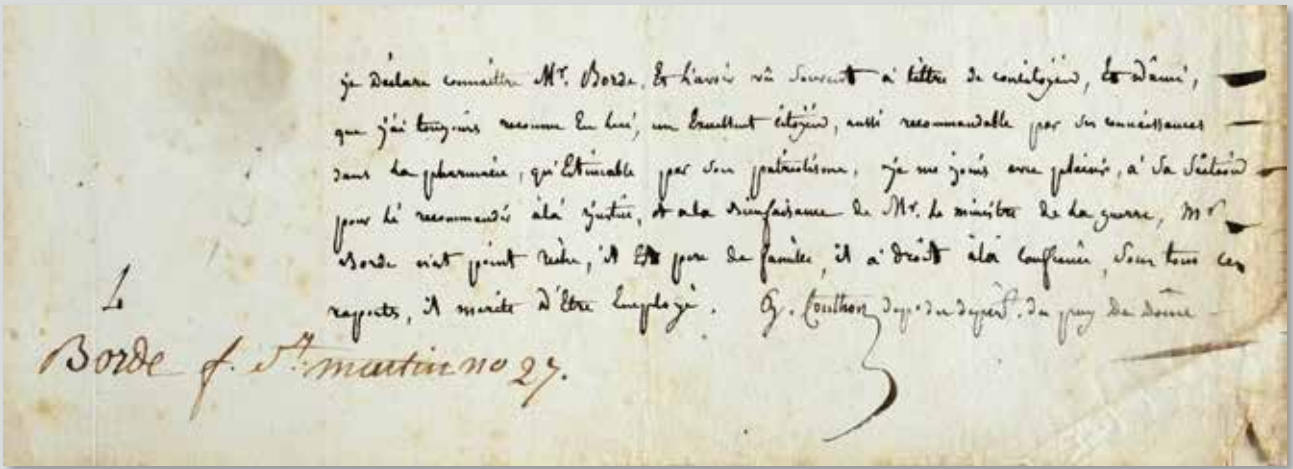 je Déclare connaittre Mr. Borde, Et L'avoir vû Souvent à tittre de concitoÿen, Et D'ami,
que j'ai toujours reconnu En lui, un Excellent citoÿen, aussi recommandable par ses connaissances
dans La pharmacie, qu'Estimable par son patriotisme, je me joins avec plaisir, à Sa Section
pour Le recommander à la justice, et a la Bienfaisance de Mr. Le ministre de La guerre, Mr
Borde n'est point riche, il Est pere de famille, il a Droit à la Confiance, Sous tous ces
rapports, il merite d'Etre Employé. G. Couthon dep. du depart. du puy De Dôme
L
Borde f. St. martin no 27.